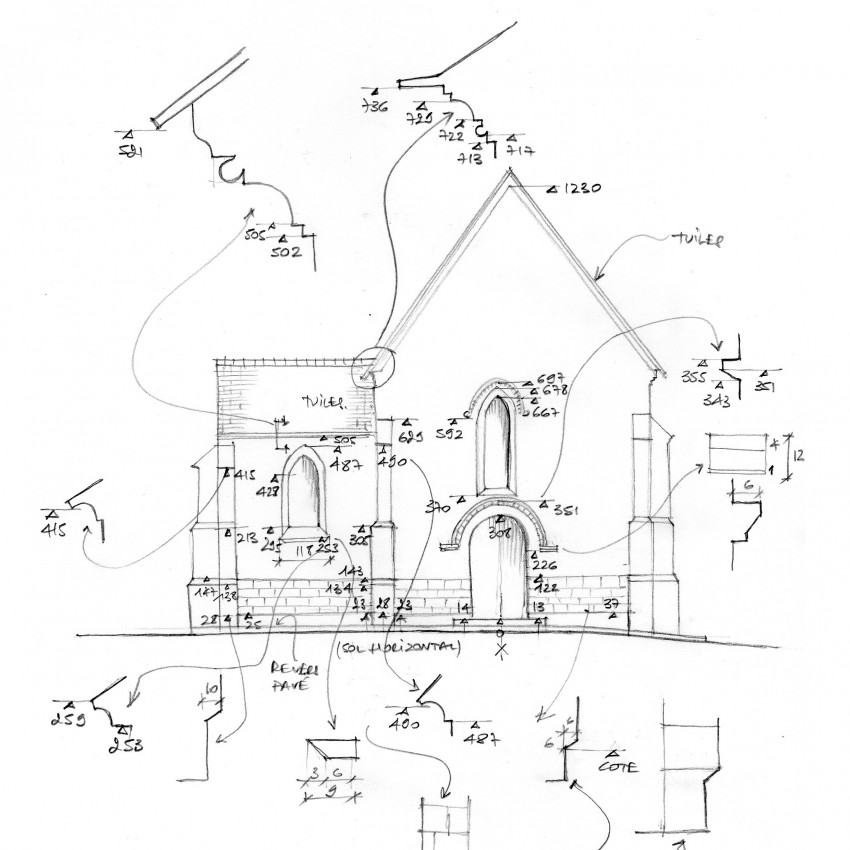 736
729
722
717
713
521
505
502
1230
TUILES
355
351
343
TUILES
697
678
667
592
629
505
487
490
4
12
1
6
415
428
415
370
351
308
213
295
118
253
305
226
122
143
134
147
138
23
28
23
14
13
37
28
25
(SOL HORIZONTAL)
REVERS
PAVÉ
X
10
259
253
490
487
6
6
COTE
3
6
9